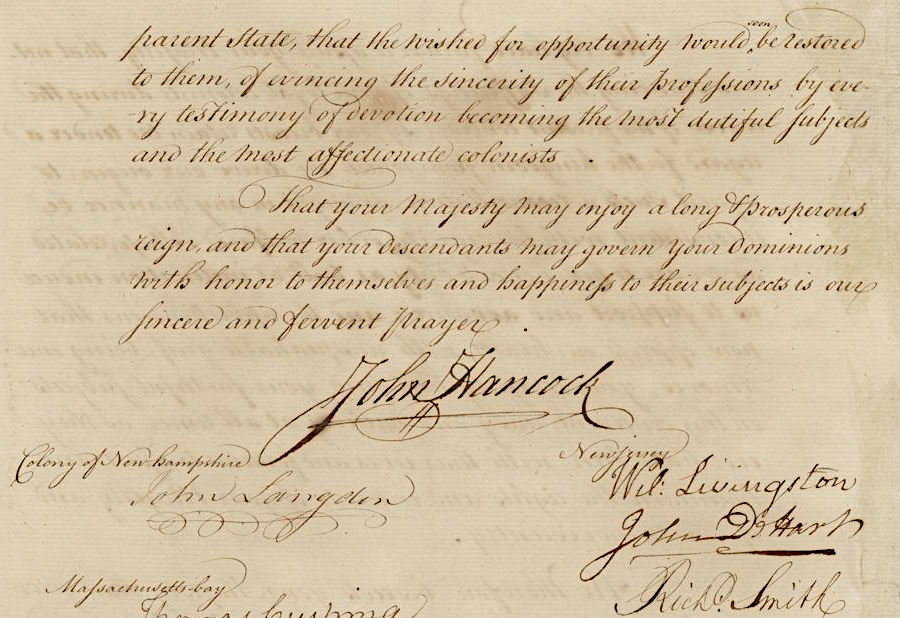 parent State, that the wished for opportunity would soon be restored
to them, of evincing the sincerity of their professions by eve-
ry testimony of devotion becoming the most dutiful subjects
and the most affectionate colonists .
That your Majesty may enjoy a long & prosperous
reign, and that your descendants may govern your Dominions
with honor to themselves and happiness to their subjects is our
sincere and fervent prayer .
John Hancock
Colony of New hampshire
John Langdon
Massachusetts-bay
Thomas Cushing
New jersey
Wil: Livingston
John De Hart
Richd. Smith